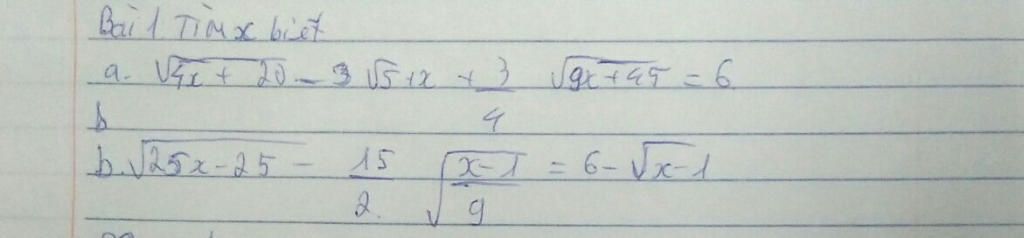 Bài 1 Tìm x biết
a. √(4x + 20) - 3 √(5+x) + 3/4 √(9x+45) = 6
b
b. √(25x-25) - 15/2. √((x-1)/9) = 6 - √(x-1)